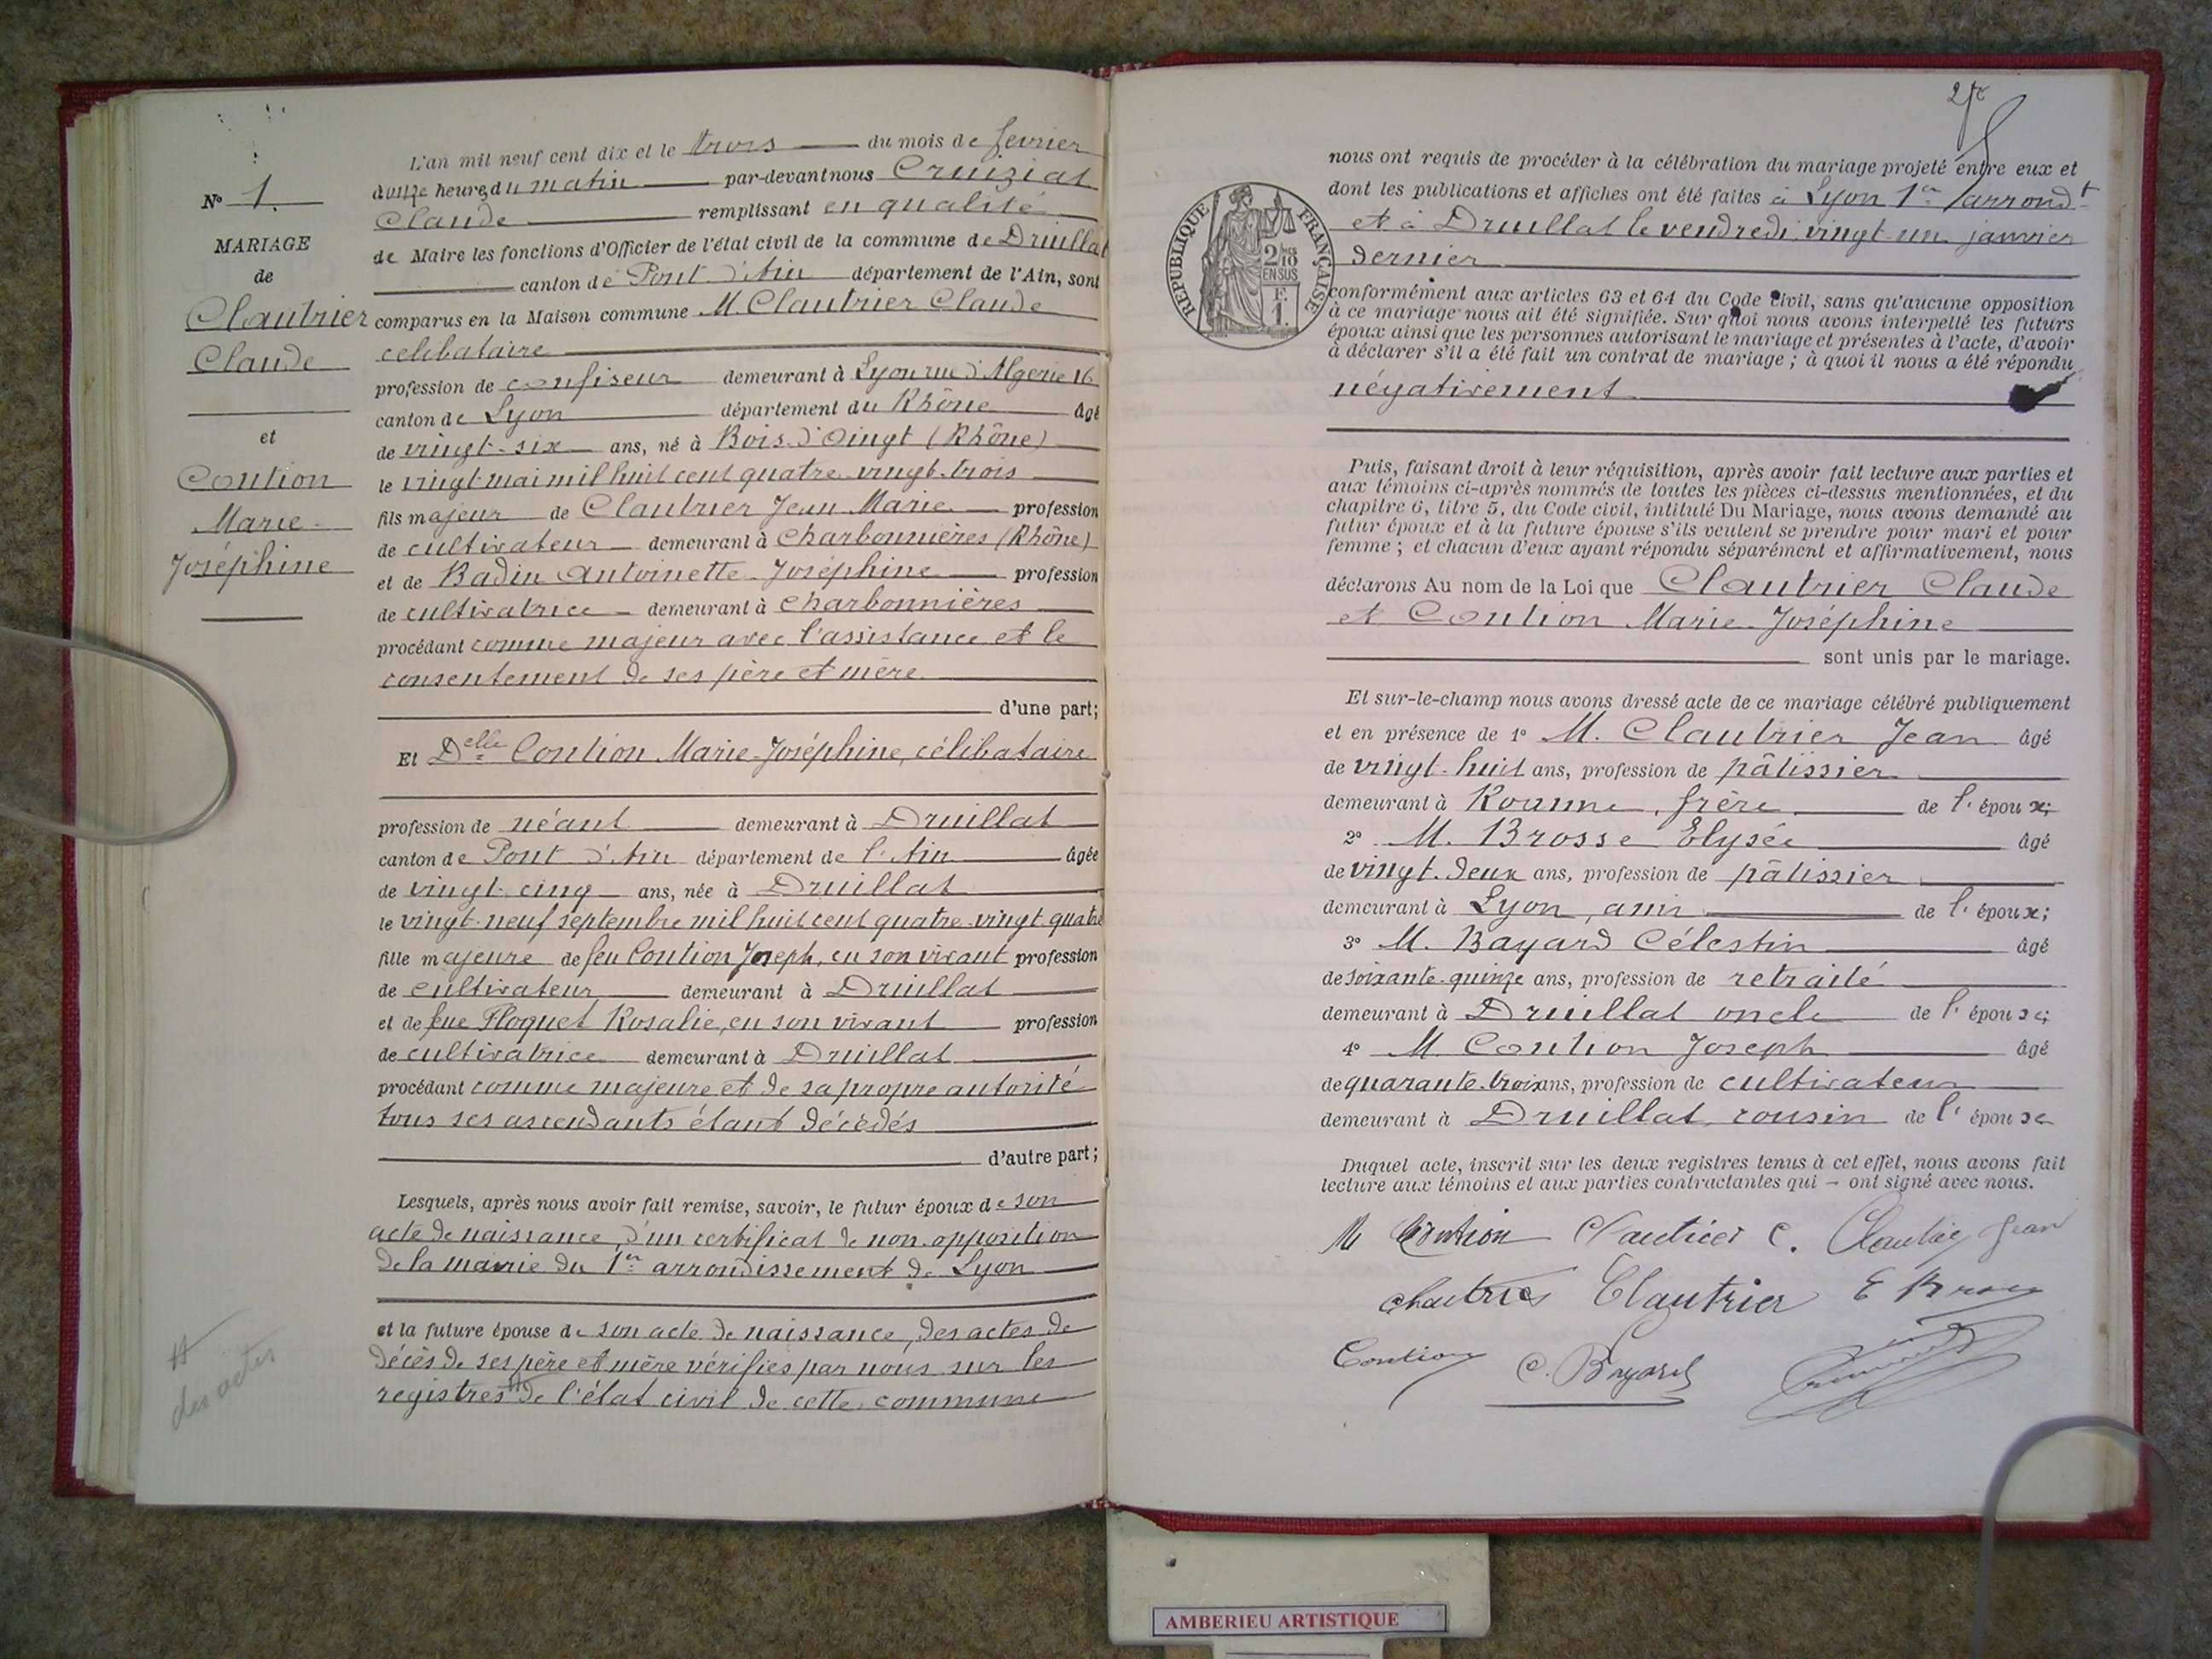 N° 1.
MARIAGE
de
Clautrier
Claude
et
Coution
Marie-
Joséphine
L'an mil neuf cent dix et le trois du mois de fevrier
à onze heures du matin par-devant nous Cruiziat
Claude remplissant en qualité
de Maire les fonctions d'Officier de l'état civil de la commune de Druillat
canton de Pont d'Ain département de l'Ain, sont
comparus en la Maison commune M. Clautrier Claude
celibataire
profession de confiseur demeurant à Lyon rue d'Algerie 16
canton de Lyon département du Rhône âgé
de vingt-six ans, né à Bois-d'Oingt (Rhône)
le vingt mai mil huit cent quatre-vingt-trois
fils majeur de Clautrier Jean-Marie profession
de cultivateur demeurant à Charbonnières (Rhône)
et de Badin Antoinette-Joséphine profession
de cultivatrice demeurant à Charbonnières
procédant comme majeur avec l'assistance et le
consentement de ses père et mère.
d'une part;
Et Delle Coution Marie-Joséphine, célibataire
profession de néant demeurant à Druillat
canton de Pont d'Ain département de l'Ain âgée
de vingt-cinq ans, née à Druillat
le vingt-neuf septembre mil huit cent quatre-vingt-quatre
fille majeure de feu Coution Joseph, en son vivant profession
de cultivateur demeurant à Druillat
et de feue Floquet Rosalie, en son vivant profession
de cultivatrice demeurant à Druillat
procédant comme majeure et de sa propre autorité
tous ses ascendants étant décédés
d'autre part;
Lesquels, après nous avoir fait remise, savoir, le futur époux de son
acte de naissance, d'un certificat de non-opposition
de la mairie du 1er arrondissement de Lyon
et la future épouse de son acte de naissance, des actes de
décès de ses père et mère vérifiés par nous sur les
registres de l'état civil de cette commune
des actes
nous ont requis de procéder à la célébration du mariage projeté entre eux et
dont les publications et affiches ont été faites à Lyon 1er arrondt
et à Druillat le vendredi vingt-un janvier
dernier
RÉPUBLIQUE FRANÇAISE
2/10 EN SUS
F. 1.
conformément aux articles 63 et 64 du Code civil, sans qu'aucune opposition
à ce mariage nous ait été signifiée. Sur quoi nous avons interpellé les futurs
époux ainsi que les personnes autorisant le mariage et présentes à l'acte, d'avoir
à déclarer s'il a été fait un contrat de mariage ; à quoi il nous a été répondu
négativement
Puis, faisant droit à leur réquisition, après avoir fait lecture aux parties et
aux témoins ci-après nommés de toutes les pièces ci-dessus mentionnées, et du
chapitre 6, titre 5, du Code civil, intitulé Du Mariage, nous avons demandé au
futur époux et à la future épouse s'ils veulent se prendre pour mari et pour
femme ; et chacun d'eux ayant répondu séparément et affirmativement, nous
déclarons Au nom de la Loi que Clautrier Claude
et Coution Marie-Joséphine
sont unis par le mariage.
Et sur-le-champ nous avons dressé acte de ce mariage célébré publiquement
et en présence de 1° M. Clautrier Jean âgé
de vingt-huit ans, profession de pâtissier
demeurant à Roanne, frère de l'époux;
2° M. Brosse Elysée âgé
de vingt-deux ans, profession de pâtissier
demeurant à Lyon, ami de l'époux;
3° M. Bayard Célestin âgé
de soixante-quinze ans, profession de retraité
demeurant à Druillat oncle de l'épouse;
4° M. Coution Joseph âgé
de quarante-trois ans, profession de cultivateur
demeurant à Druillat, cousin de l'épouse
Duquel acte, inscrit sur les deux registres tenus à cet effet, nous avons fait
lecture aux témoins et aux parties contractantes qui – ont signé avec nous.
M Coution Clautrier C. Clautrier Jean
Clautrier E Brosse
Coution C. Bayard
AMBERIEU ARTISTIQUE